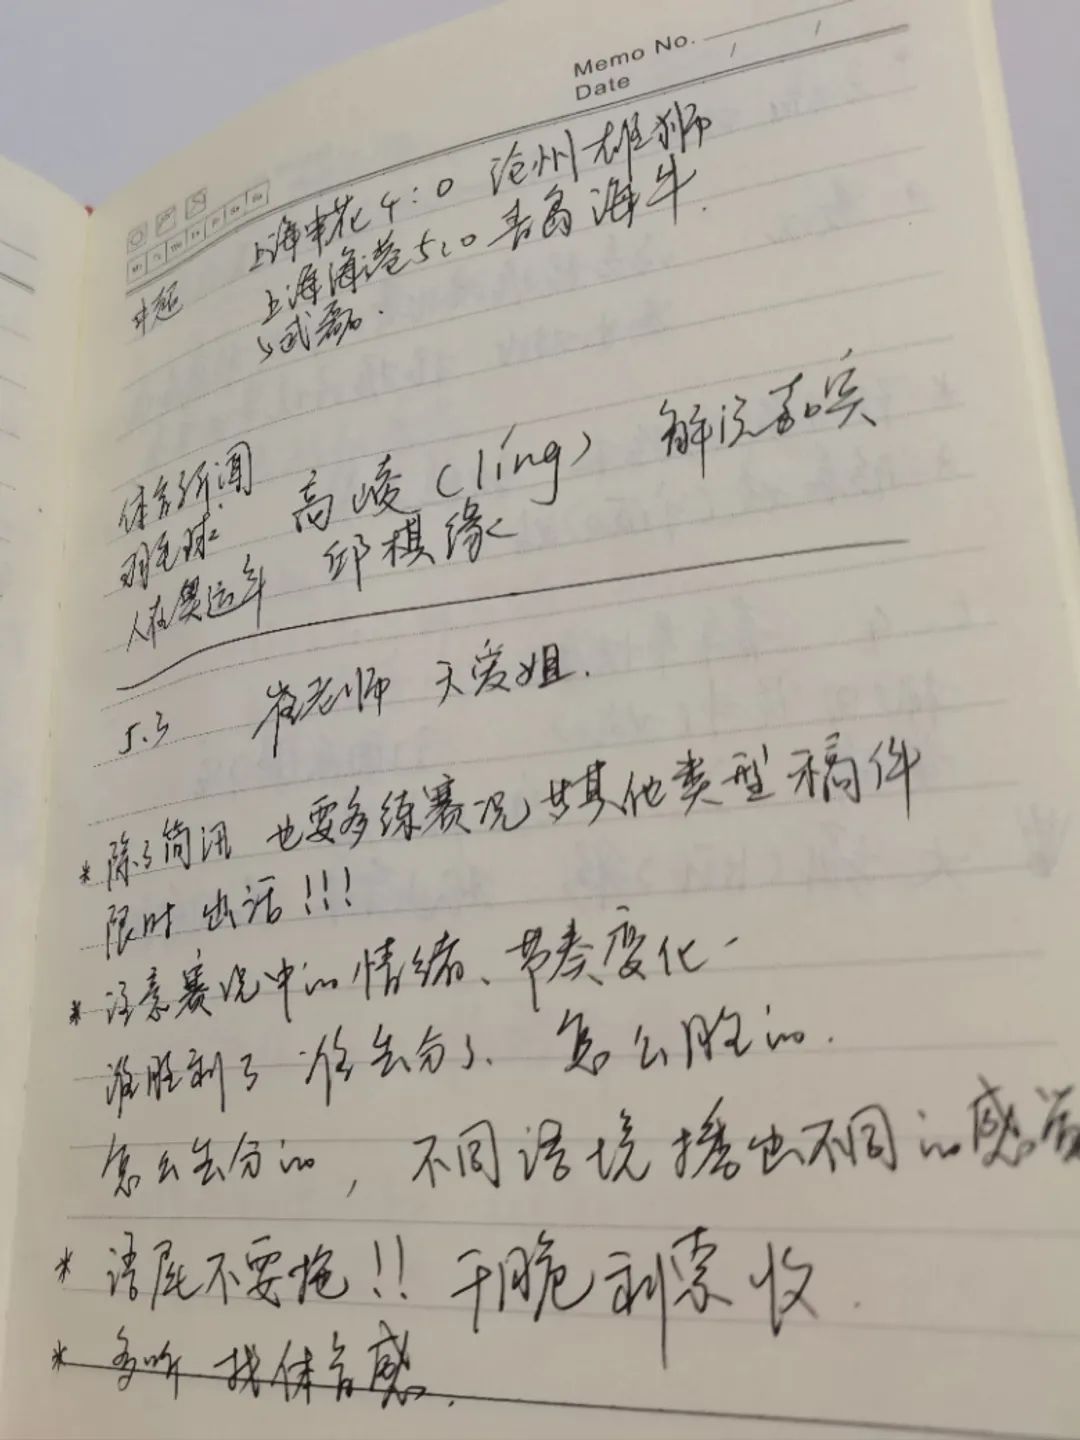 Memo No.
Date / /
Mo Tu We Th Fr Sa Su
中超 上海申花4:0 沧州雄狮
上海海港5:0 青岛海牛.
↳武磊.
体育新闻
羽毛球 高崚(líng) 解说嘉宾
人在奥运年 邱棋缘
5.3 崔老师 天爱姐.
* 除了简讯 也要多练赛况其其他类型稿件
限时出话!!!
* 注意赛况中的情绪、节奏变化.
谁胜利了 谁丢分了、怎么胜的.
怎么丢分的, 不同语境播出不同的感觉
* 语尾不要拖!! 干脆利索收.
* 多听 找体育感.